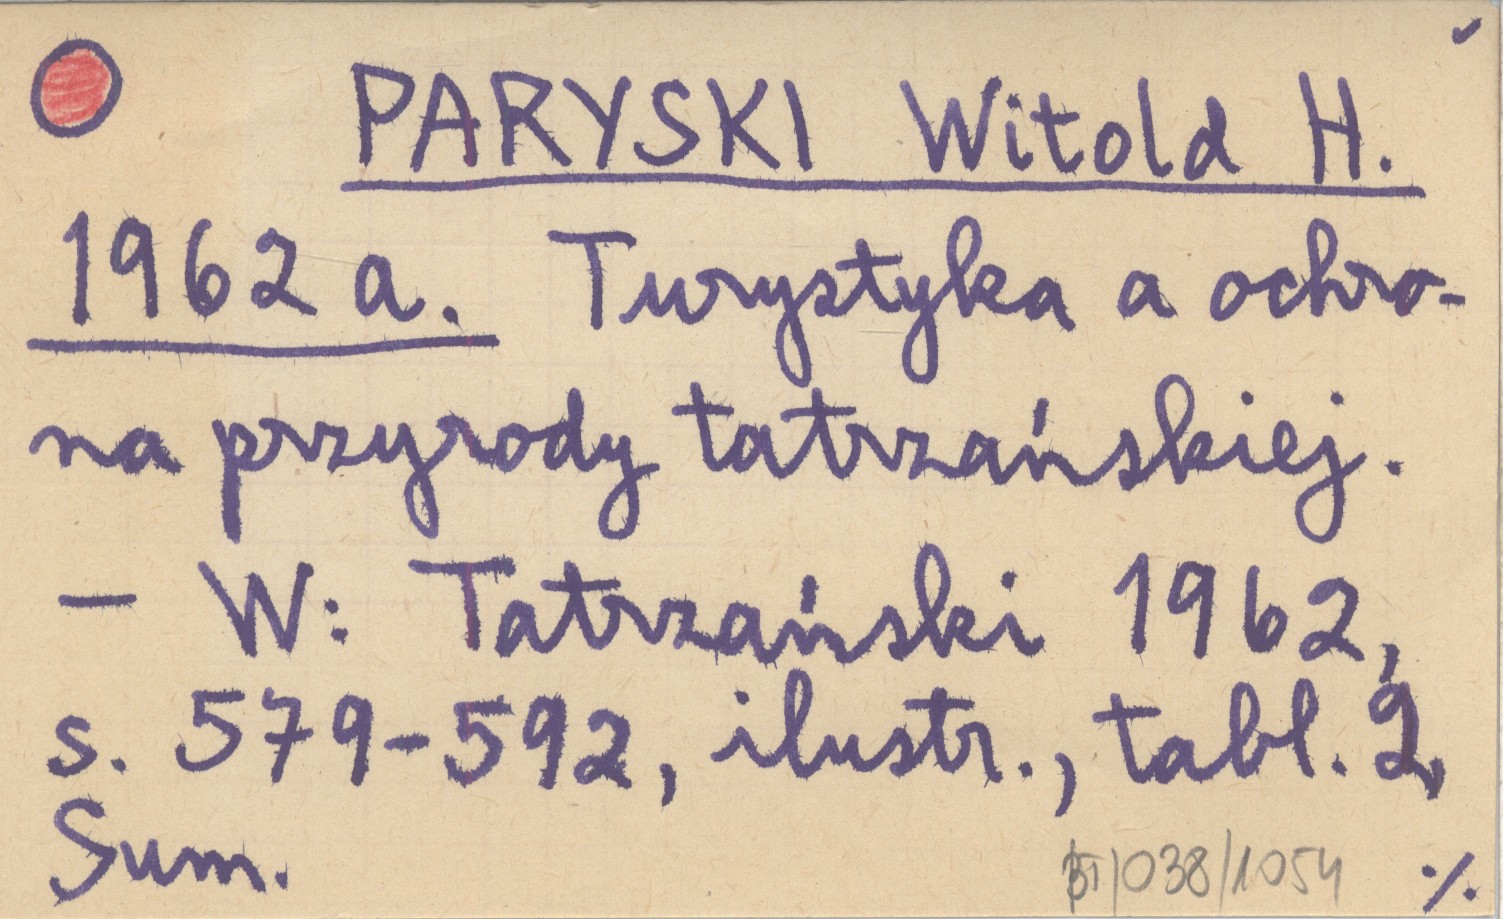 PARYSKI Witold H.
1962 a. Turystyka a ochro-
na przyrody tatrzańskiej.
— W: Tatrzański 1962,
s. 579-592, ilustr., tabl. 2,
Sum.
/038/1054 ·/.